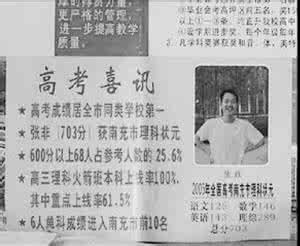 更严格的管理,
进一步提高教学
质量。
高考喜讯
★高考成绩居全市同类学校第一
★张非(703分)获南充市理科状元
★600分以上68人占参考人数的25.6%
★高三理科火箭班本科上线率100%.
其中重点上线率61.5%
★6人单科成绩进入南充市前10名
张非
2003年全国高考南充市理科状元
语文125 数学146
英语143 理综289
总分703